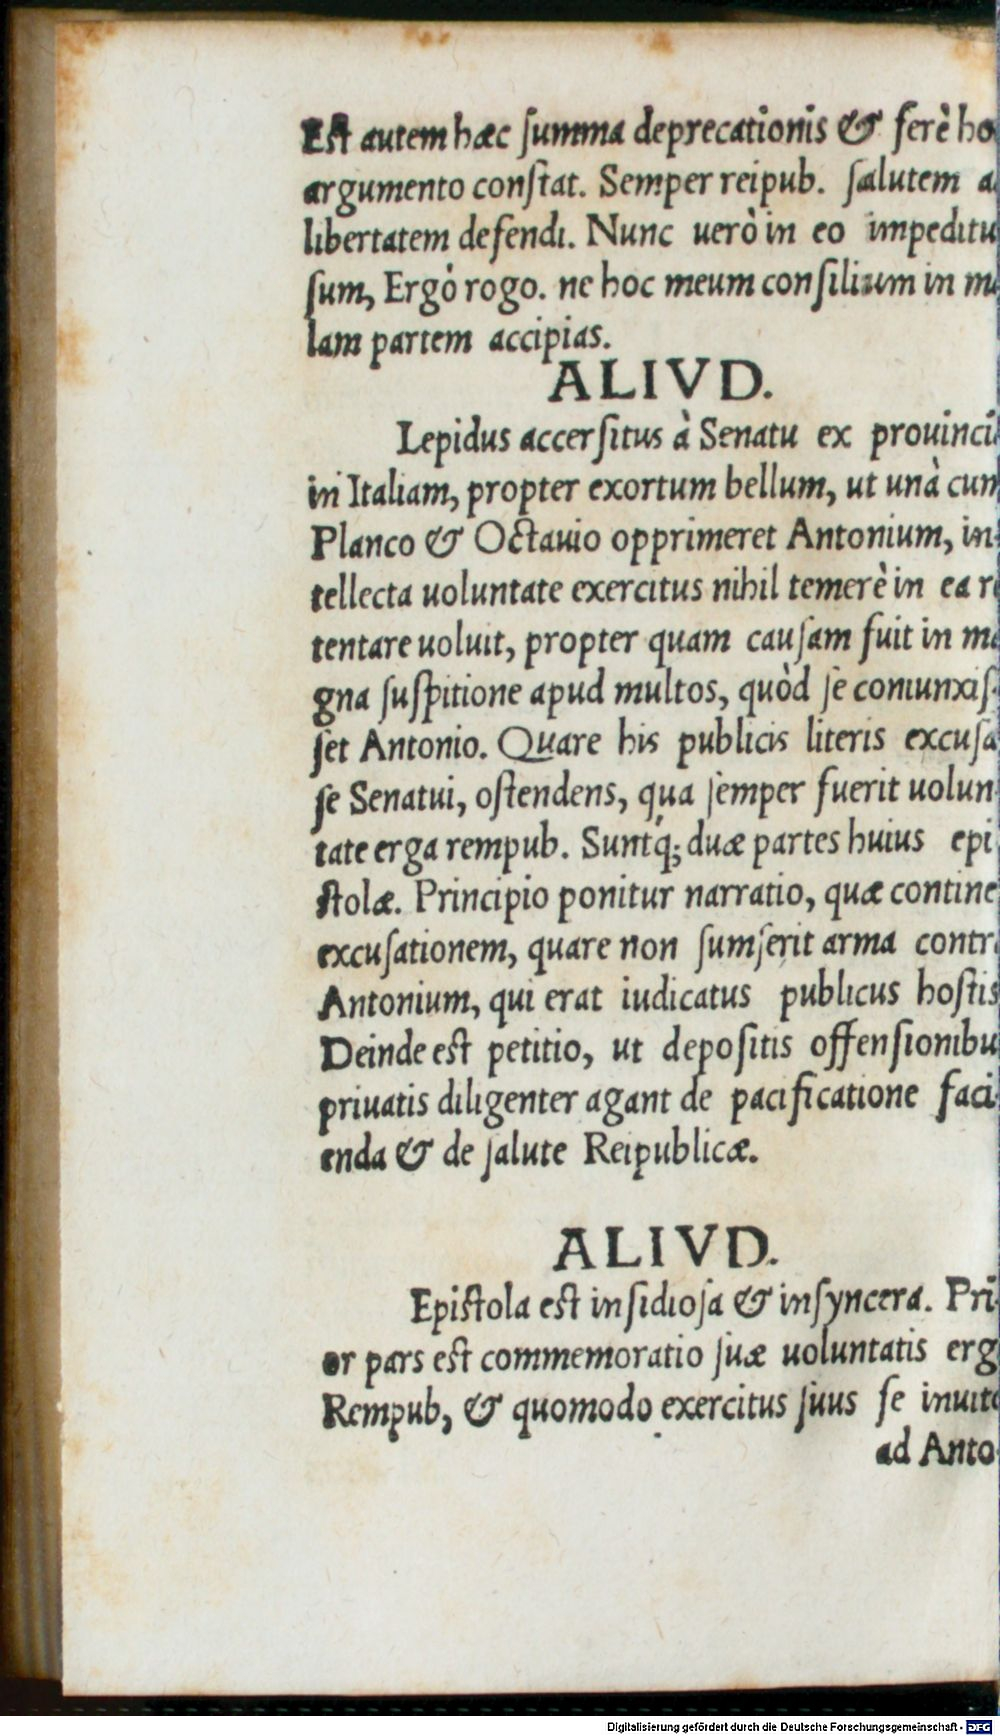 Est autem hæc summa deprecationis & ferè ho
argumento constat. Semper reipub. salutem a
libertatem defendi. Nunc uerò in eo impeditu
sum, Ergò rogo. ne hoc meum consilium in m
lam partem accipias.
ALIVD.
Lepidus accersitus à Senatu ex prouinci
in Italiam, propter exortum bellum, ut unà cum
Planco & Octauio opprimeret Antonium, in-
tellecta uoluntate exercitus nihil temerè in ea r
tentare uoluit, propter quam causam fuit in ma
gna suspitione apud multos, quòd se coniunxis-
set Antonio. Quare his publicis literis excusa
se Senatui, ostendens, qua semper fuerit uolun-
tate erga rempub. Suntq́; duæ partes huius epi
stolæ. Principio ponitur narratio, quæ contine
excusationem, quare non sumserit arma contr
Antonium, qui erat iudicatus publicus hostis
Deinde est petitio, ut depositis offensionibu
priuatis diligenter agant de pacificatione faci-
enda & de salute Reipublicæ.
ALIVD.
Epistola est insidiosa & insyncera. Pri-
or pars est commemoratio suæ uoluntatis erg
Rempub, & quomodo exercitus suus se inuito
ad Anto-
Digitalisierung gefördert durch die Deutsche Forschungsgemeinschaft - DFG